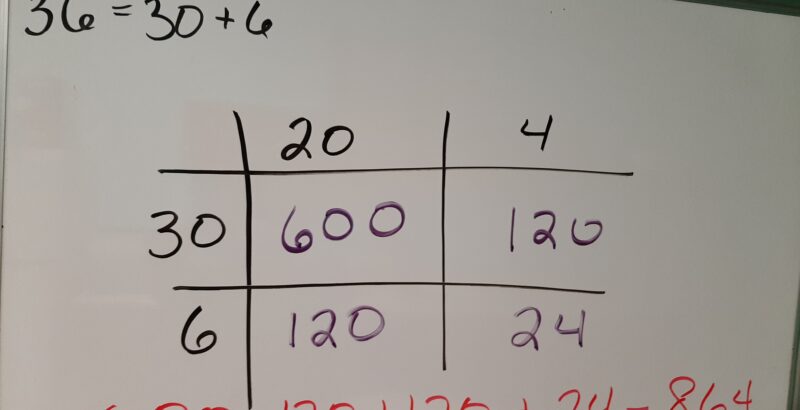 36 = 30 + 6
20 4
30 600 120
6 120 24
600 120 + 120 + 24 = 864